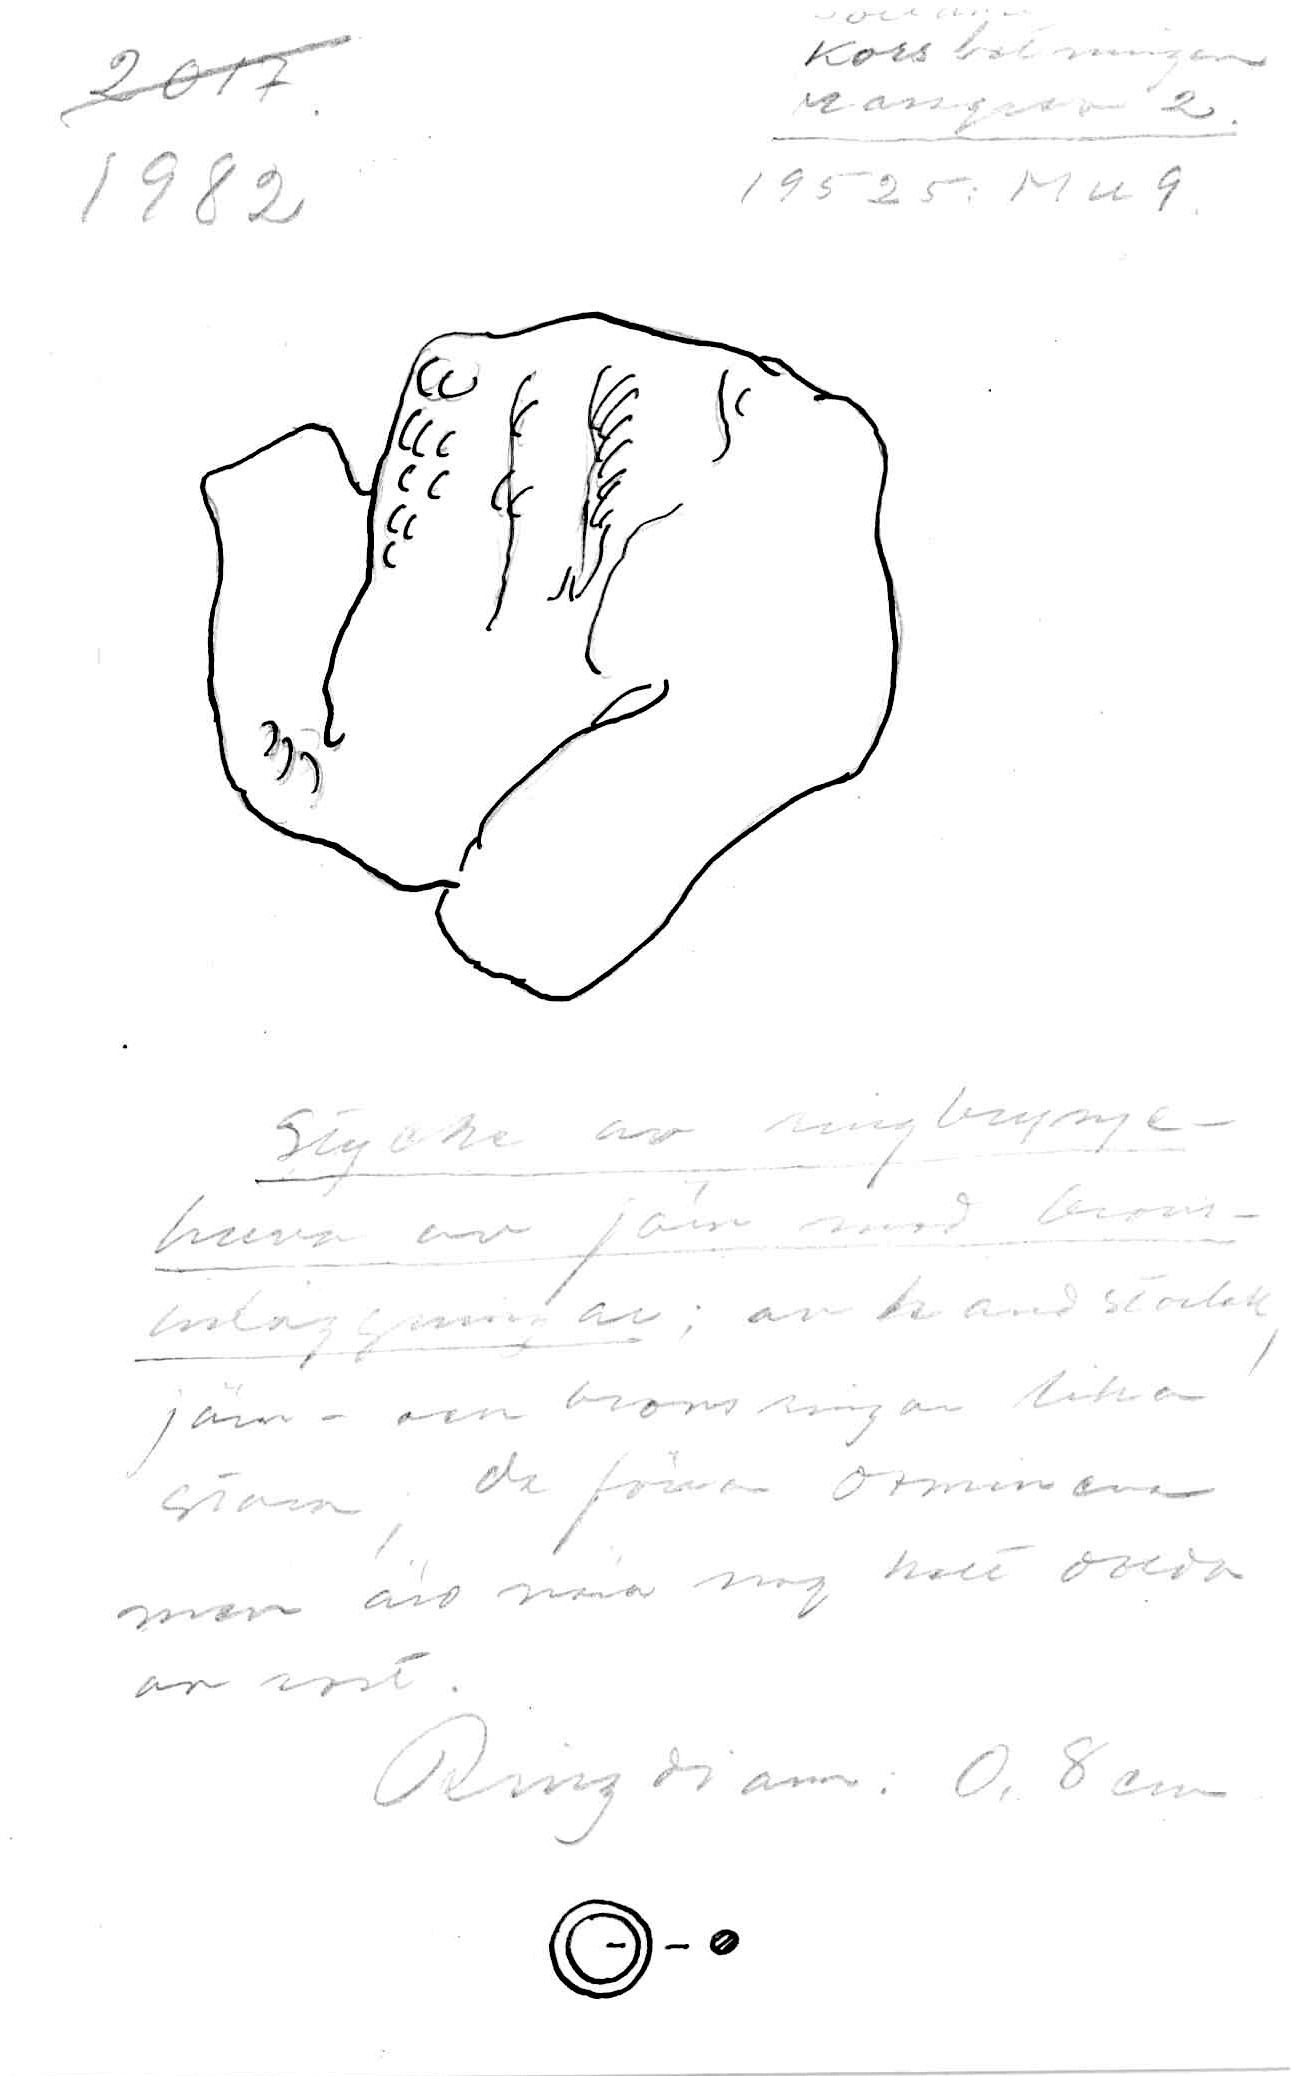 2017.
1982
Korsbetningen
Massgrav 2.
19525: MU 9.
Stycke av ringbrynje-
huva av järn med brons-
inläggningar; av handstorlek,
järn- och bronsringar lika
stora, de förra
men äro nära nog helt
av rost.
Ringdiam: 0,8 cm